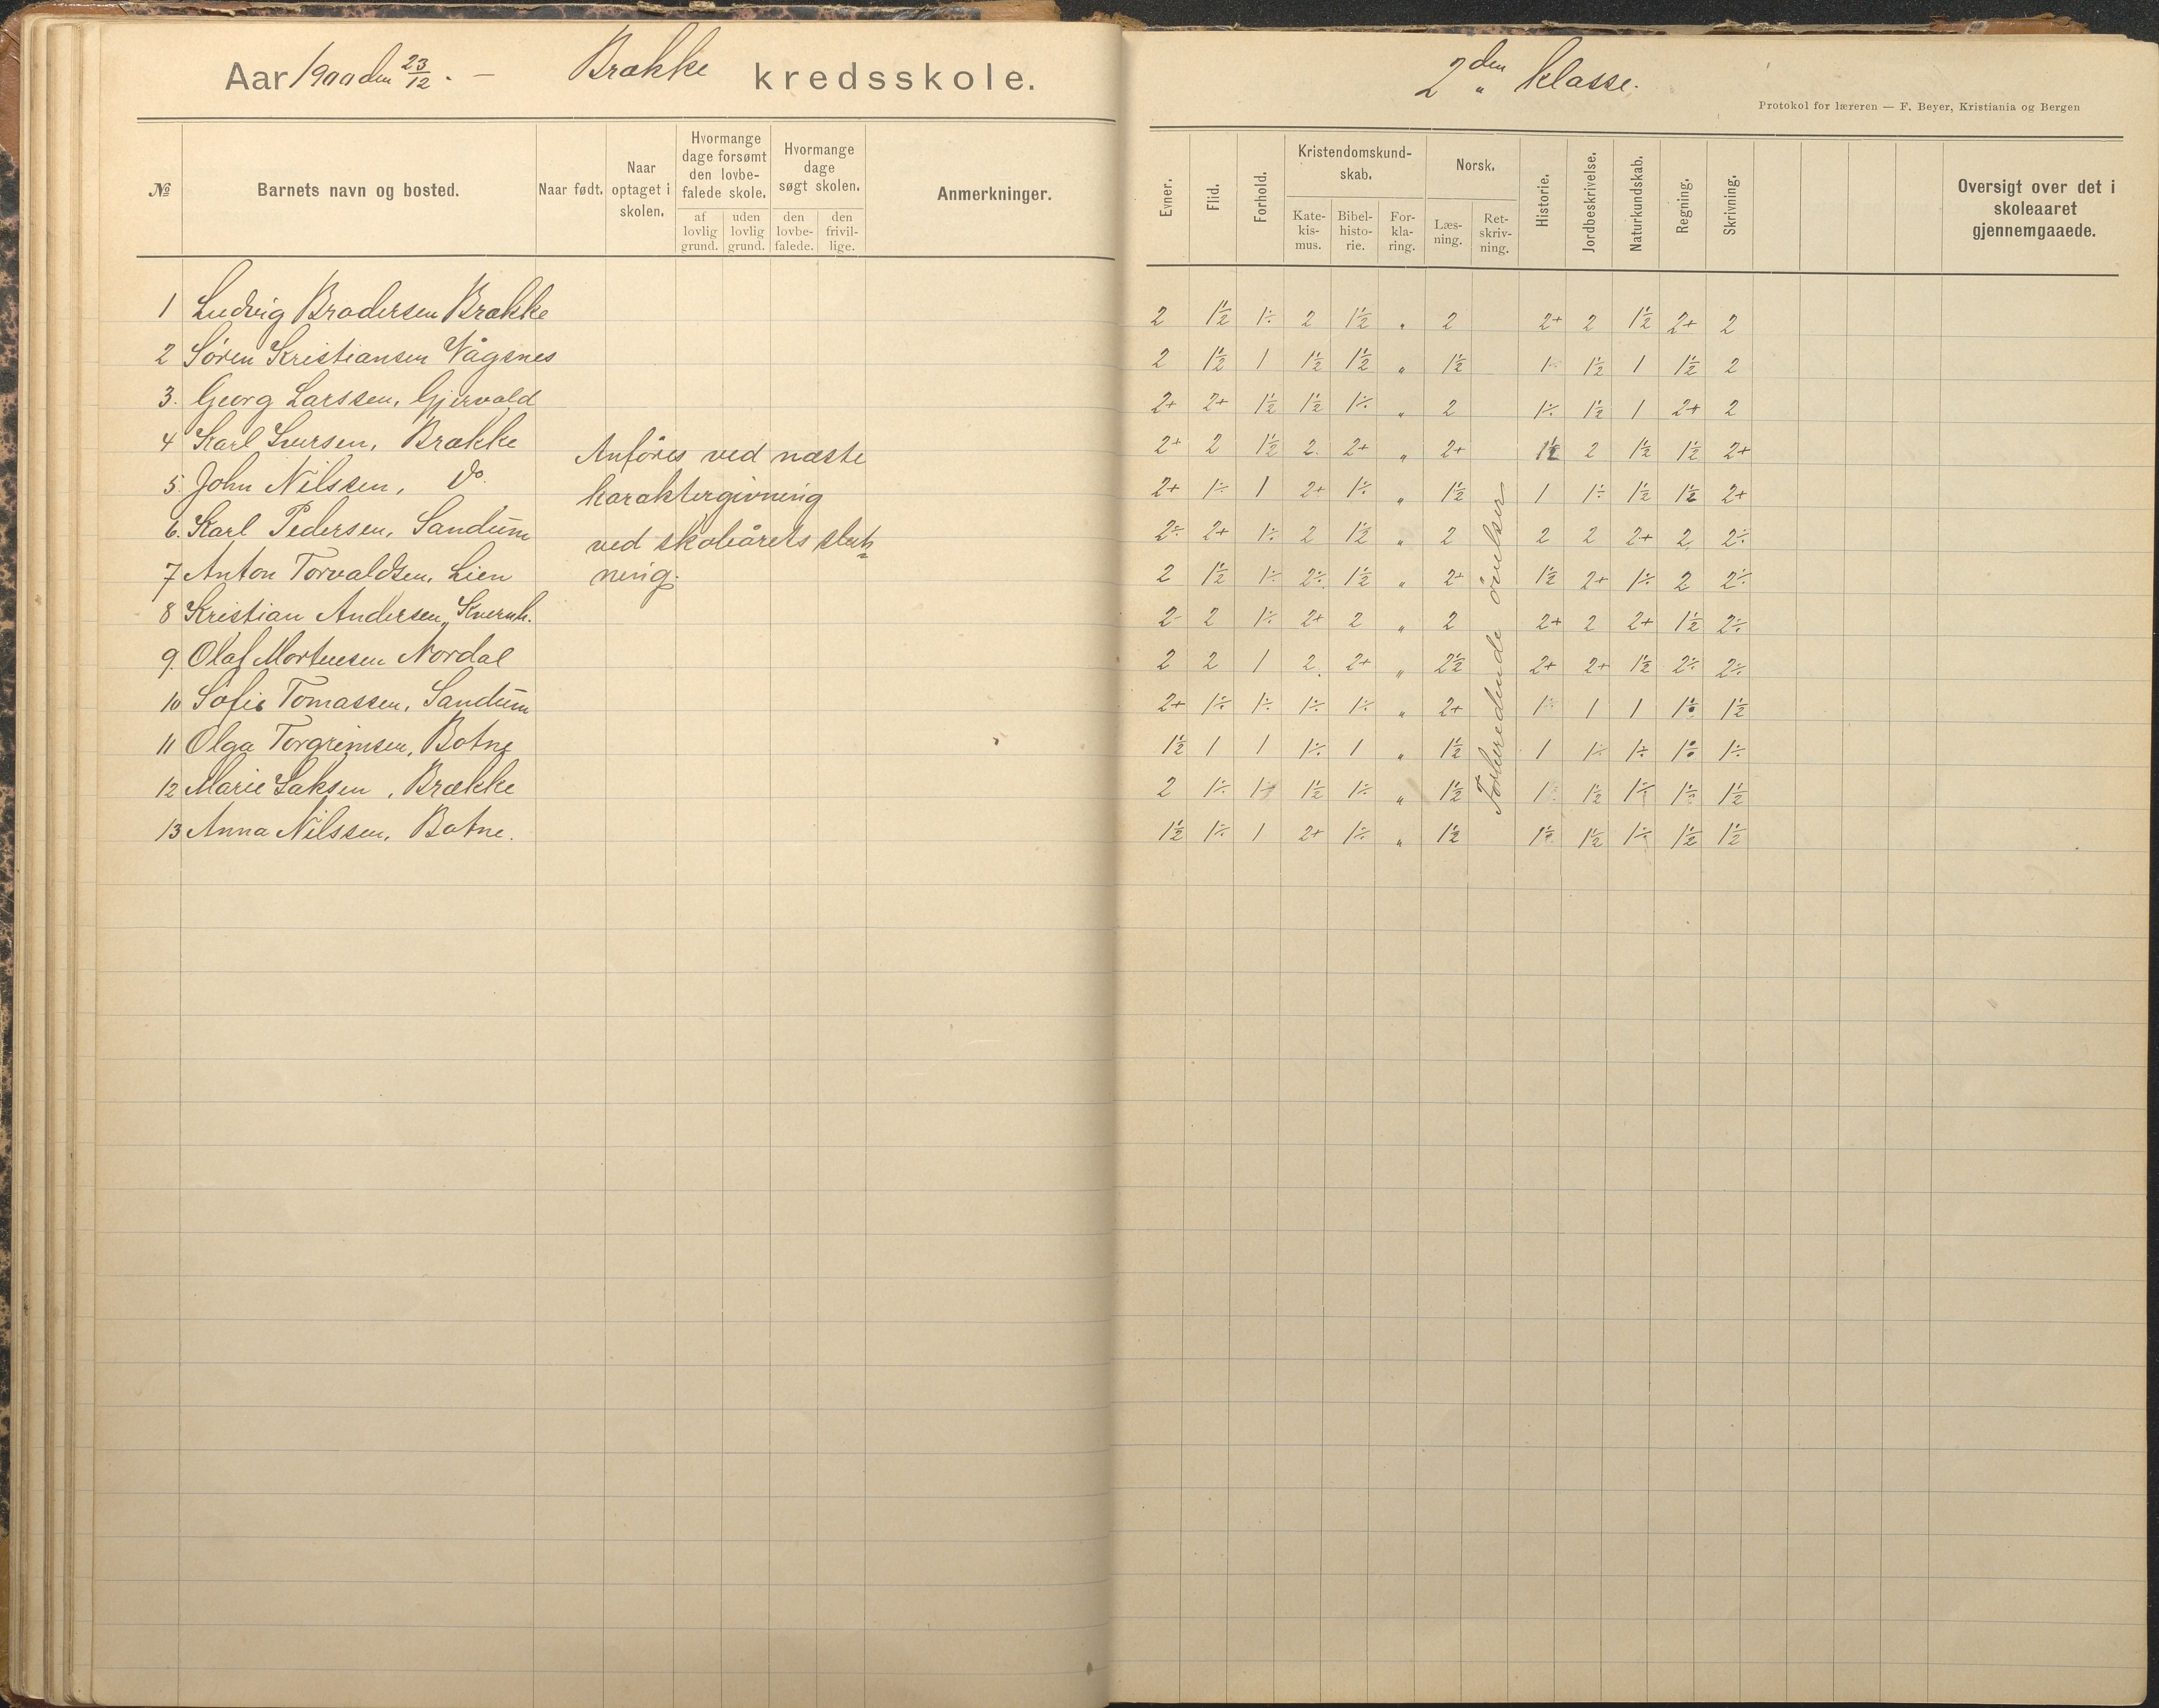 Aar 1900 den 23/12. — Brække kredsskole.
2den klasse.
Protokol for læreren — F. Beyer, Kristiania og Bergen
№ Barnets navn og bosted. Naar født. Naar optaget i skolen. Hvormange dage forsømt den lovbefalede skole. af lovlig grund. uden lovlig grund. Hvormange dage søgt skolen. den lovbe-falede. den frivil-lige. Anmerkninger.
Evner. Flid. Forhold. Kristendomskund-skab. Kate-kis-mus. Bibel-histo-rie. For-kla-ring. Norsk. Læs-ning. Ret-skriv-ning. Historie. Jordbeskrivelse. Naturkundskab. Regning. Skrivning. Oversigt over det i skoleaaret gjennemgaaede.
1 Ludvig Brodersen Brække 2 1½ 1÷ 2 1½ „ 2 2+ 2 1½ 2+ 2
2 Søren Kristiansen Vågsnes 2 1½ 1 1½ 1½ „ 1½ 1 1½ 1 1½ 2
3. Georg Larssen, Gjervold 2+ 2+ 1½ 1½ 1÷ „ 2 1÷ 1½ 1 2+ 2
4 Karl Iversen, Brække 2+ 2 1½ 2 2+ „ 2+ 1½ 2 1½ 1½ 2+
5. John Nilssen, Do. 2+ 1÷ 1 2+ 1÷ „ 1½ 1 1÷ 1½ 1½ 2+
6. Karl Pedersen, Sandum 2÷ 2+ 1÷ 2 1½ „ 2 2 2 2+ 2 2÷
7 Anton Torvaldsen, Lien 2 1½ 1÷ 2÷ 1½ „ 2+ 1½ 2+ 1÷ 2 2÷
8 Kristian Andersen, Kvernh. 2- 2 1÷ 2+ 2 „ 2 2+ 2 2+ 1½ 2÷
9. Olaf Mortensen Nordal 2 2 1 2 2+ „ 2½ 2+ 2+ 1½ 2÷ 2÷
10 Sofie Tomassen, Sandum 2+ 1÷ 1÷ 1÷ 1÷ „ 2+ 1÷ 1 1 1÷ 1½
11 Olga Torgrimsen, Botne 1½ 1 1 1÷ 1 „ 1½ 1 1÷ 1÷ 1÷ 1÷
12 Marie Isaksen, Brække 2 1÷ 1÷ 1½ 1÷ „ 1½ 1 1½ 1÷ 1÷ 1½
13 Anna Nilssen, Botne. 1½ 1÷ 1 2+ 1÷ „ 1½ 1½ 1½ 1÷ 1½ 1½
Anføres ved næste
karaktergivning
ved skoleårets slut=
ning.
Forberedende øvelser